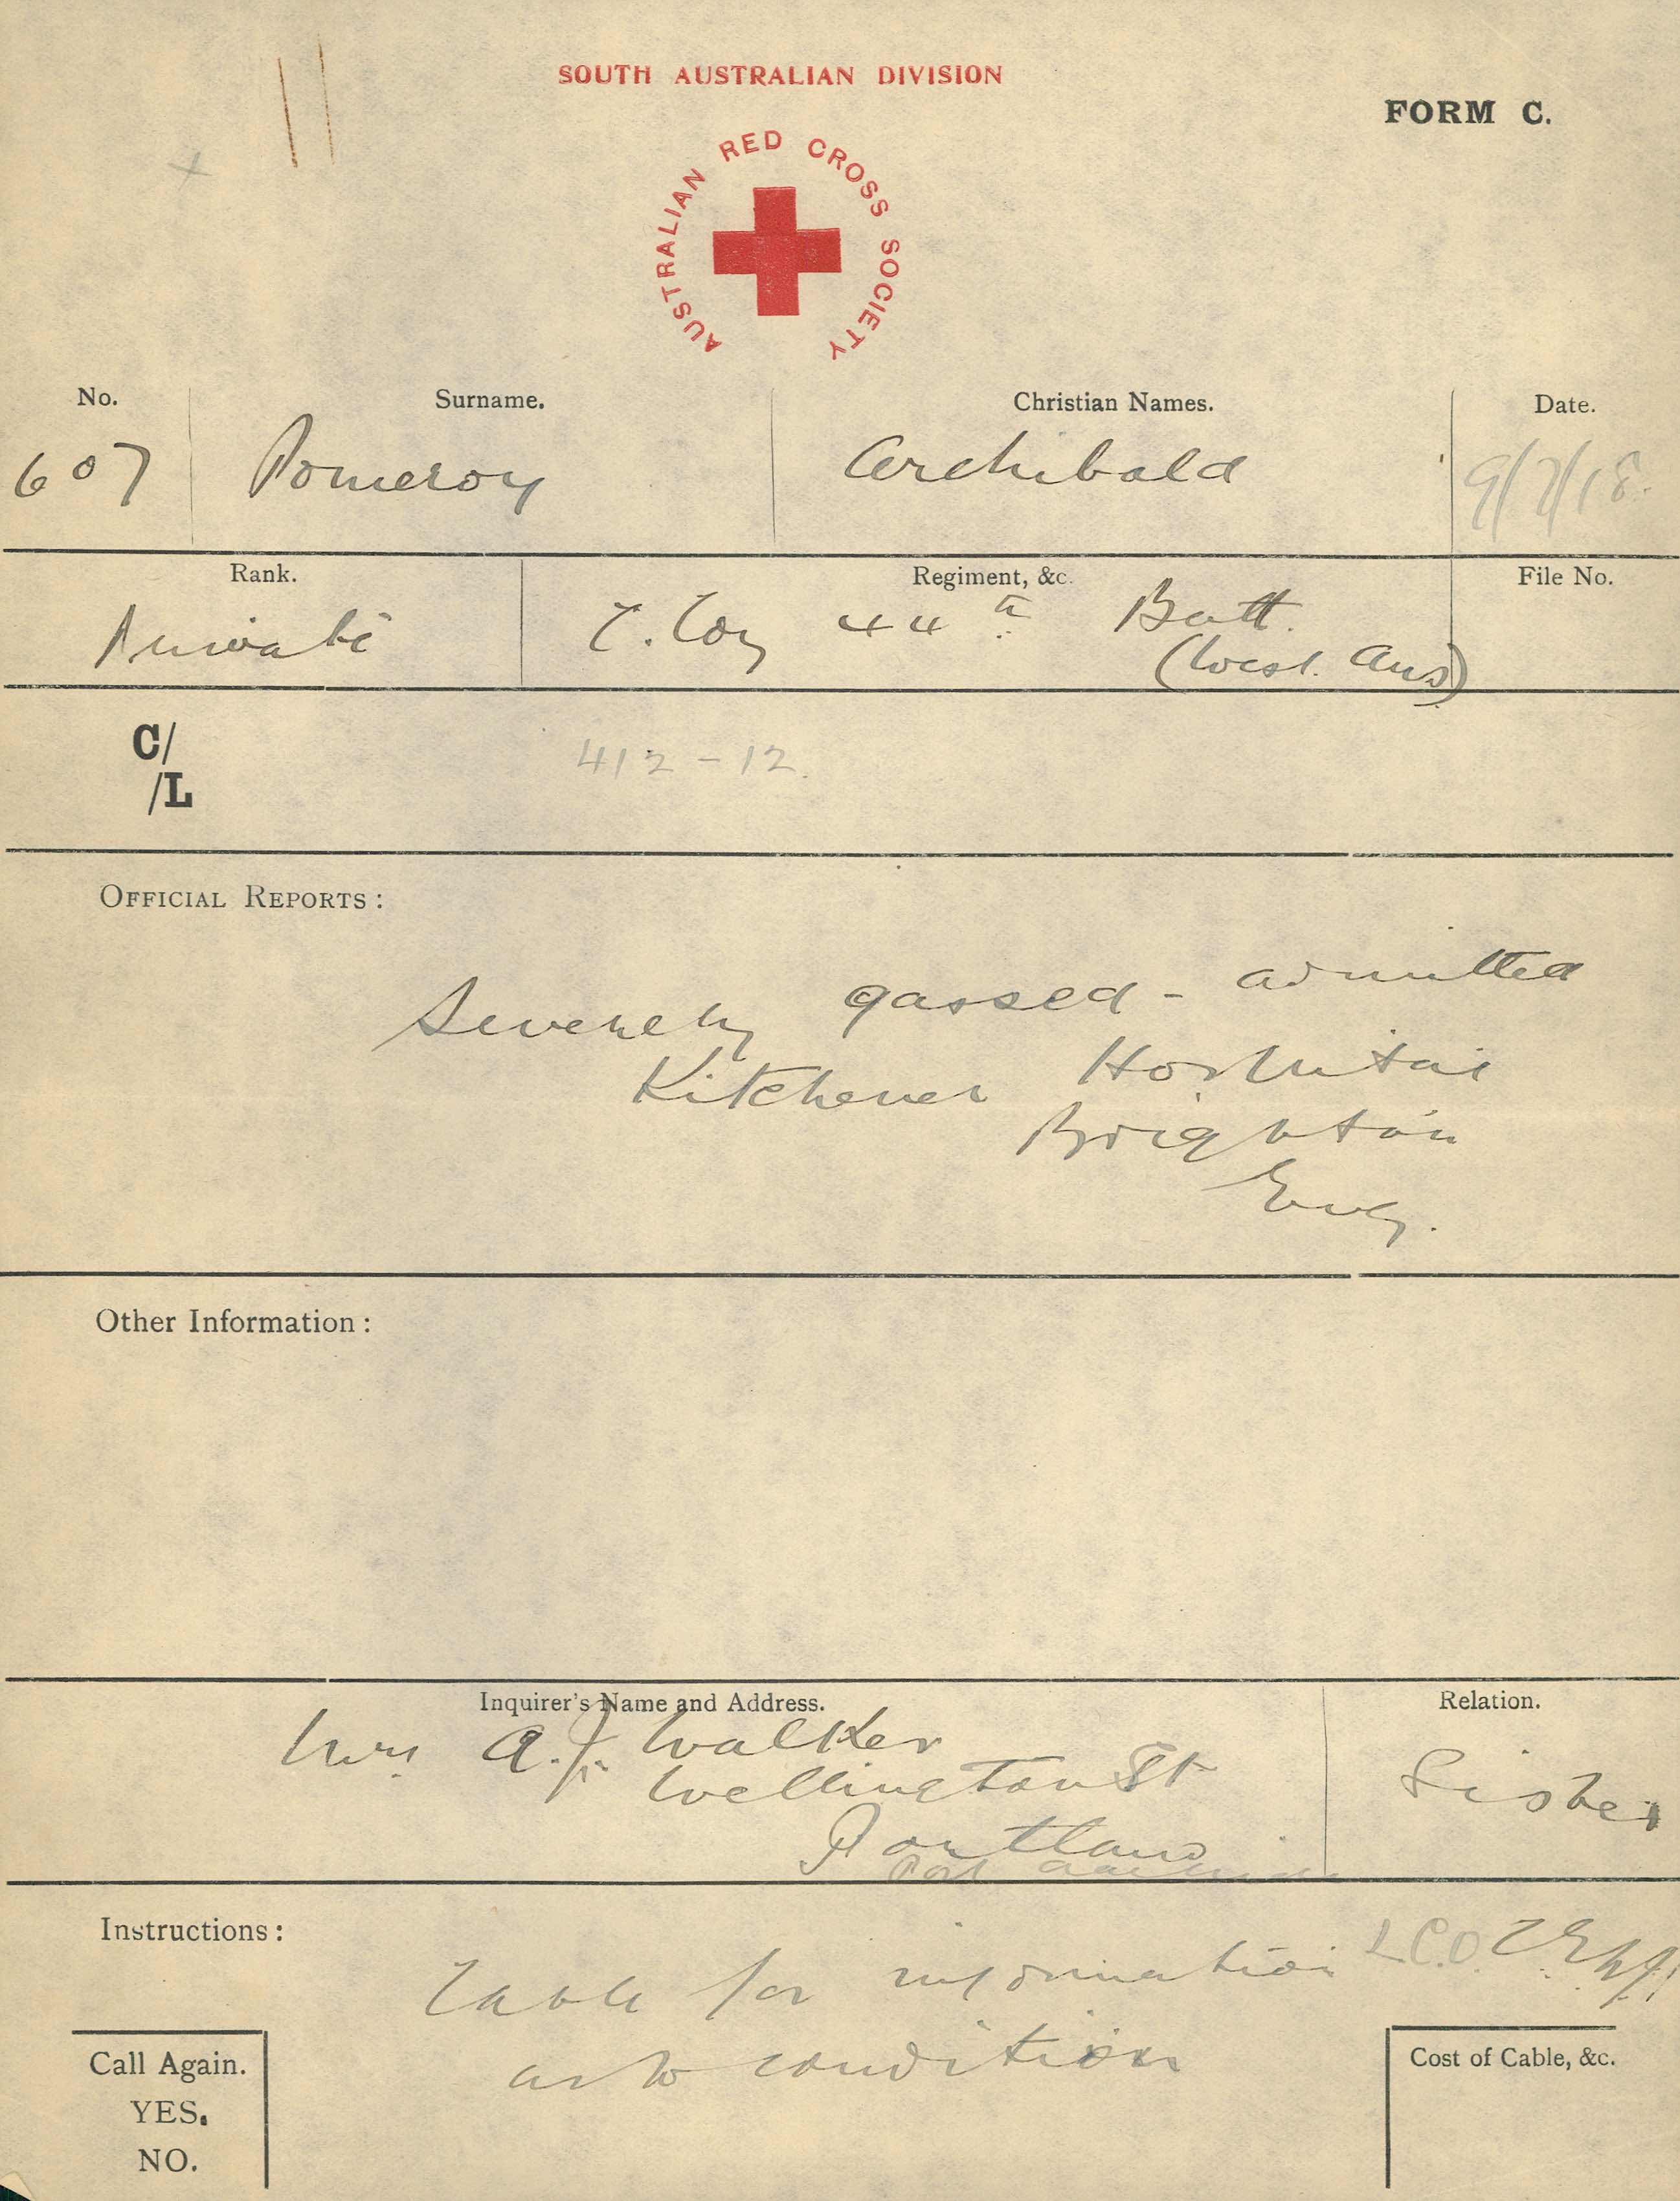 SOUTH AUSTRALIAN DIVISION
FORM C.
AUSTRALIAN RED CROSS SOCIETY
No. Surname. Christian Names. Date.
607 Pomeroy Archibald 9/7/18.
Rank. Regiment, &c. File No.
Private C. Coy 44th Batt.
(West. Aus)
C/
/L
412-12.
OFFICIAL REPORTS:
Severely gassed - admitted
Kitchener Hospital
Brighton
Eng.
Other Information:
Inquirer's Name and Address. Relation.
Mrs A. J. Walker
Wellington St Sister
Portland
Port
Instructions:
Cable for information L.C.O.
as to condition
Call Again.
YES.
NO.
Cost of Cable, &c.